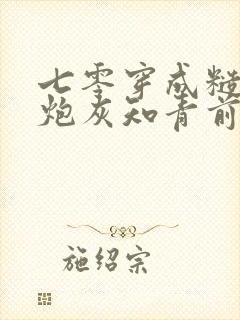 七零穿成糙
炮灰知青前
施绍宗